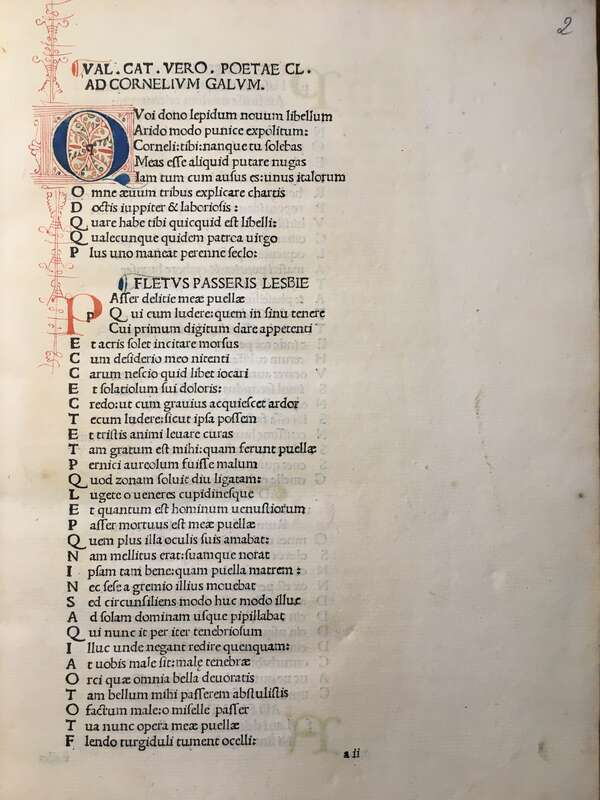 2
VAL. CAT. VERO. POETAE CL.
AD CORNELIVM GALVM.
QVoi dono lepidum nouum libellum
Arido modo punice expolitum:
Corneli:tibi:nanque tu solebas
Meas esse aliquid putare nugas
Iam tum cum ausus es:unus italorum
O mne æuum tribus explicare chartis
D octis iuppiter & laboriosis:
Q uare habe tibi quicquid est libelli:
Q ualecunque quidem patroa uirgo
P lus uno maneat perenne seclo:
FLETVS PASSERIS LESBIE
P Asser delitie meæ puellæ
Q ui cum ludere:quem in sinu tenere
Cui primum digitum dare appetenti
E t acris solet incitare morsus
C um desiderio meo nitenti
C arum nescio quid libet iocari
E t solatiolum sui doloris:
C redo:ut cum grauius acquiescet ardor
T ecum ludere:sicut ipsa possem
E t tristis animi leuare curas
T am gratum est mihi:quam ferunt puellæ
P ernici aureolum fuisse malum
Q uod zonam soluit diu ligatam:
L ugete o ueneres cupidinesque
E t quantum est hominum uenustiorum
P asser mortuus est meæ puellæ
Q uem plus illa oculis suis amabat:
N am mellitus erat:suamque norat
I psam tam bene:quam puella matrem:
N ec sese a gremio illius mouebat
S ed circunsiliens modo huc modo illuc
A d solam dominam usque pipillabat
Q ui nunc it per iter tenebriosum
I lluc unde negant redire quenquam:
A t uobis male sit:malę tenebræ
O rci quæ omnia bella deuoratis
T am bellum mihi passerem abstulistis
O factum male:o miselle passer
T ua nunc opera meæ puellæ
F lendo turgiduli tument ocelli:
a ii